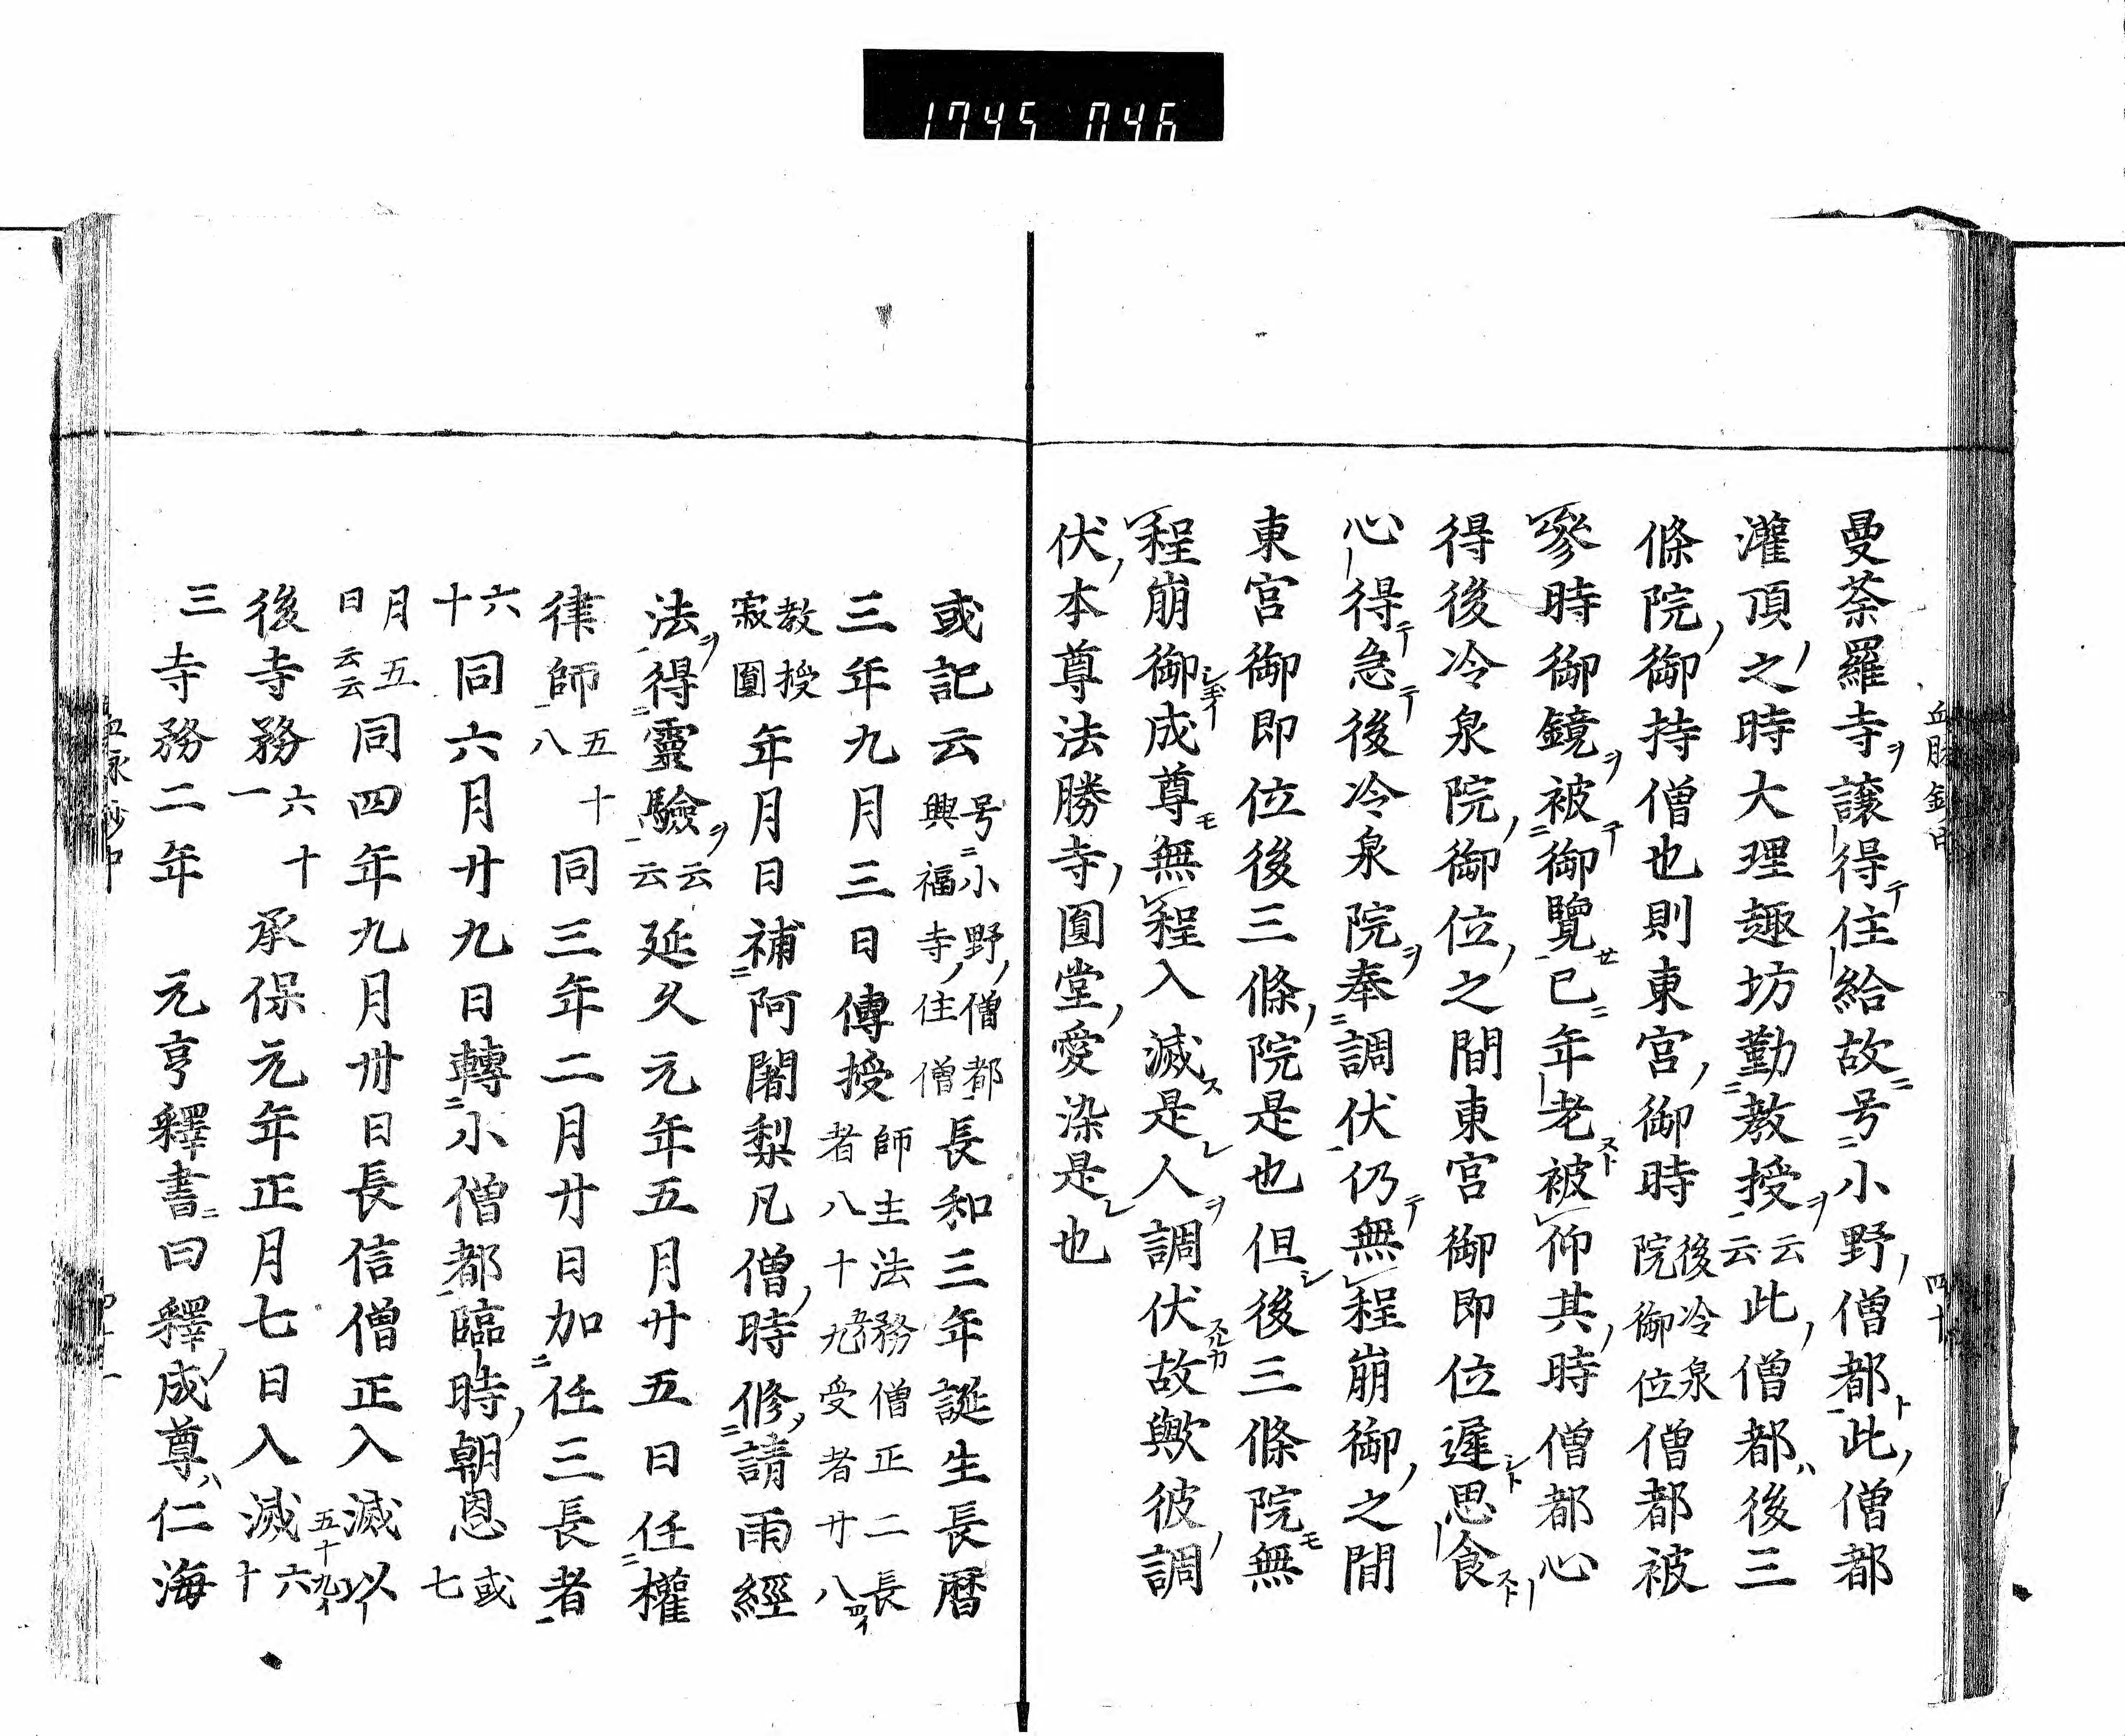 1745 046
曼荼羅寺ヲ譲得テ住給故ニ号ニ小野ノ僧都ト此ノ僧都
灌頂ノ之時大理趣坊勤ニ教授ヲ云云此ノ僧都ハ後三
條院ノ御持僧也則東宮ノ御時後冷泉院御位僧都被
参時御鏡ヲ被ニ御覽セ已ニ年老スト被仰其ノ時僧都心
得後冷泉院ノ御位ノ之間東宮御即位遲シト思食スト
心得テ急テ後冷泉院ヲ奉ニ調伏仍テ無程崩御ノ之間
東宮御即位後三條ノ院是也但シ後三條院モ無
程崩御シ玉イ成尊モ無程入滅ス是レ人ヲ調伏スルカ故歟彼ノ調
伏ノ本尊法勝寺ノ圓堂ノ愛染是レ也
或記云号ニ小野ノ僧都興福寺ノ住僧長和三年誕生長暦
三年九月三日傳授師主法務僧正二長者八十九受者廿八
教授寂圓年月日補ニ阿闍梨凡僧ノ時修ニ請雨經
法ヲ得ニ靈驗ヲ云云延久元年五月廿五日任ニ權
律師五十八同三年二月廿日加ニ任三長者
六十同六月廿九日轉ニ小僧都臨時ノ朝恩或七
月五日云云同四年九月卅日長信僧正入滅以
後寺務六十一承保元年正月七日入滅六十
三寺務二年 元亨釋書ニ曰釋ノ成尊ハ仁海